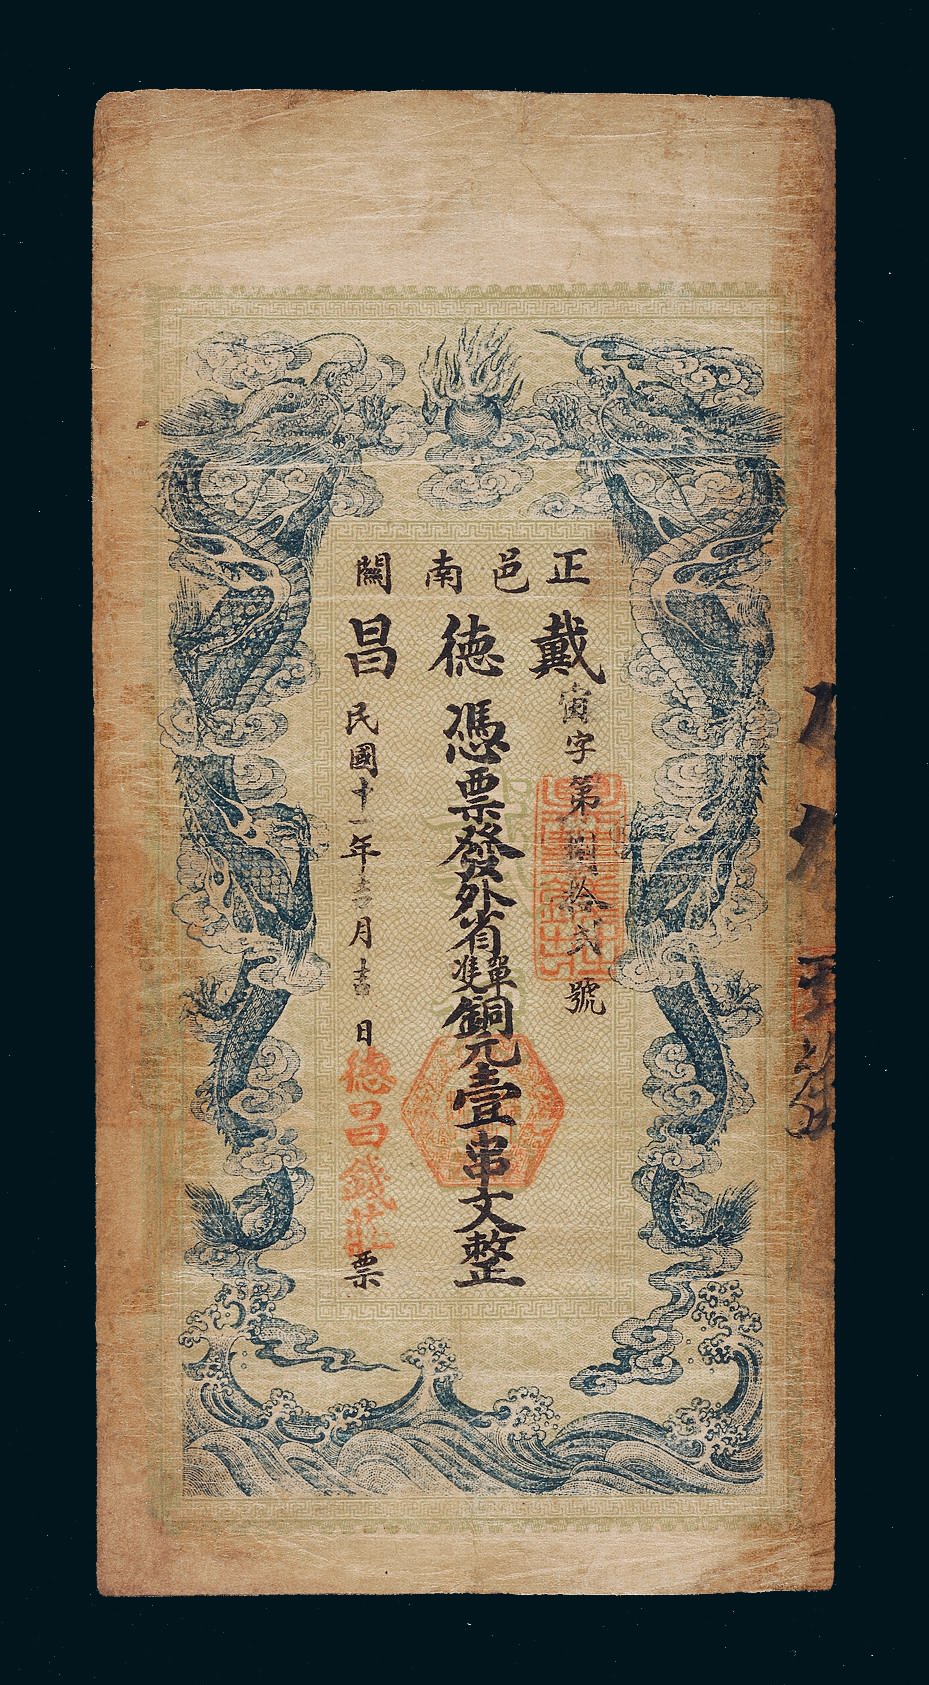 正邑南關
戴德昌
寅字第捌拾弍號
憑票發外省單雙銅元壹串文整
民國十一年 月 日
德昌錢莊
票